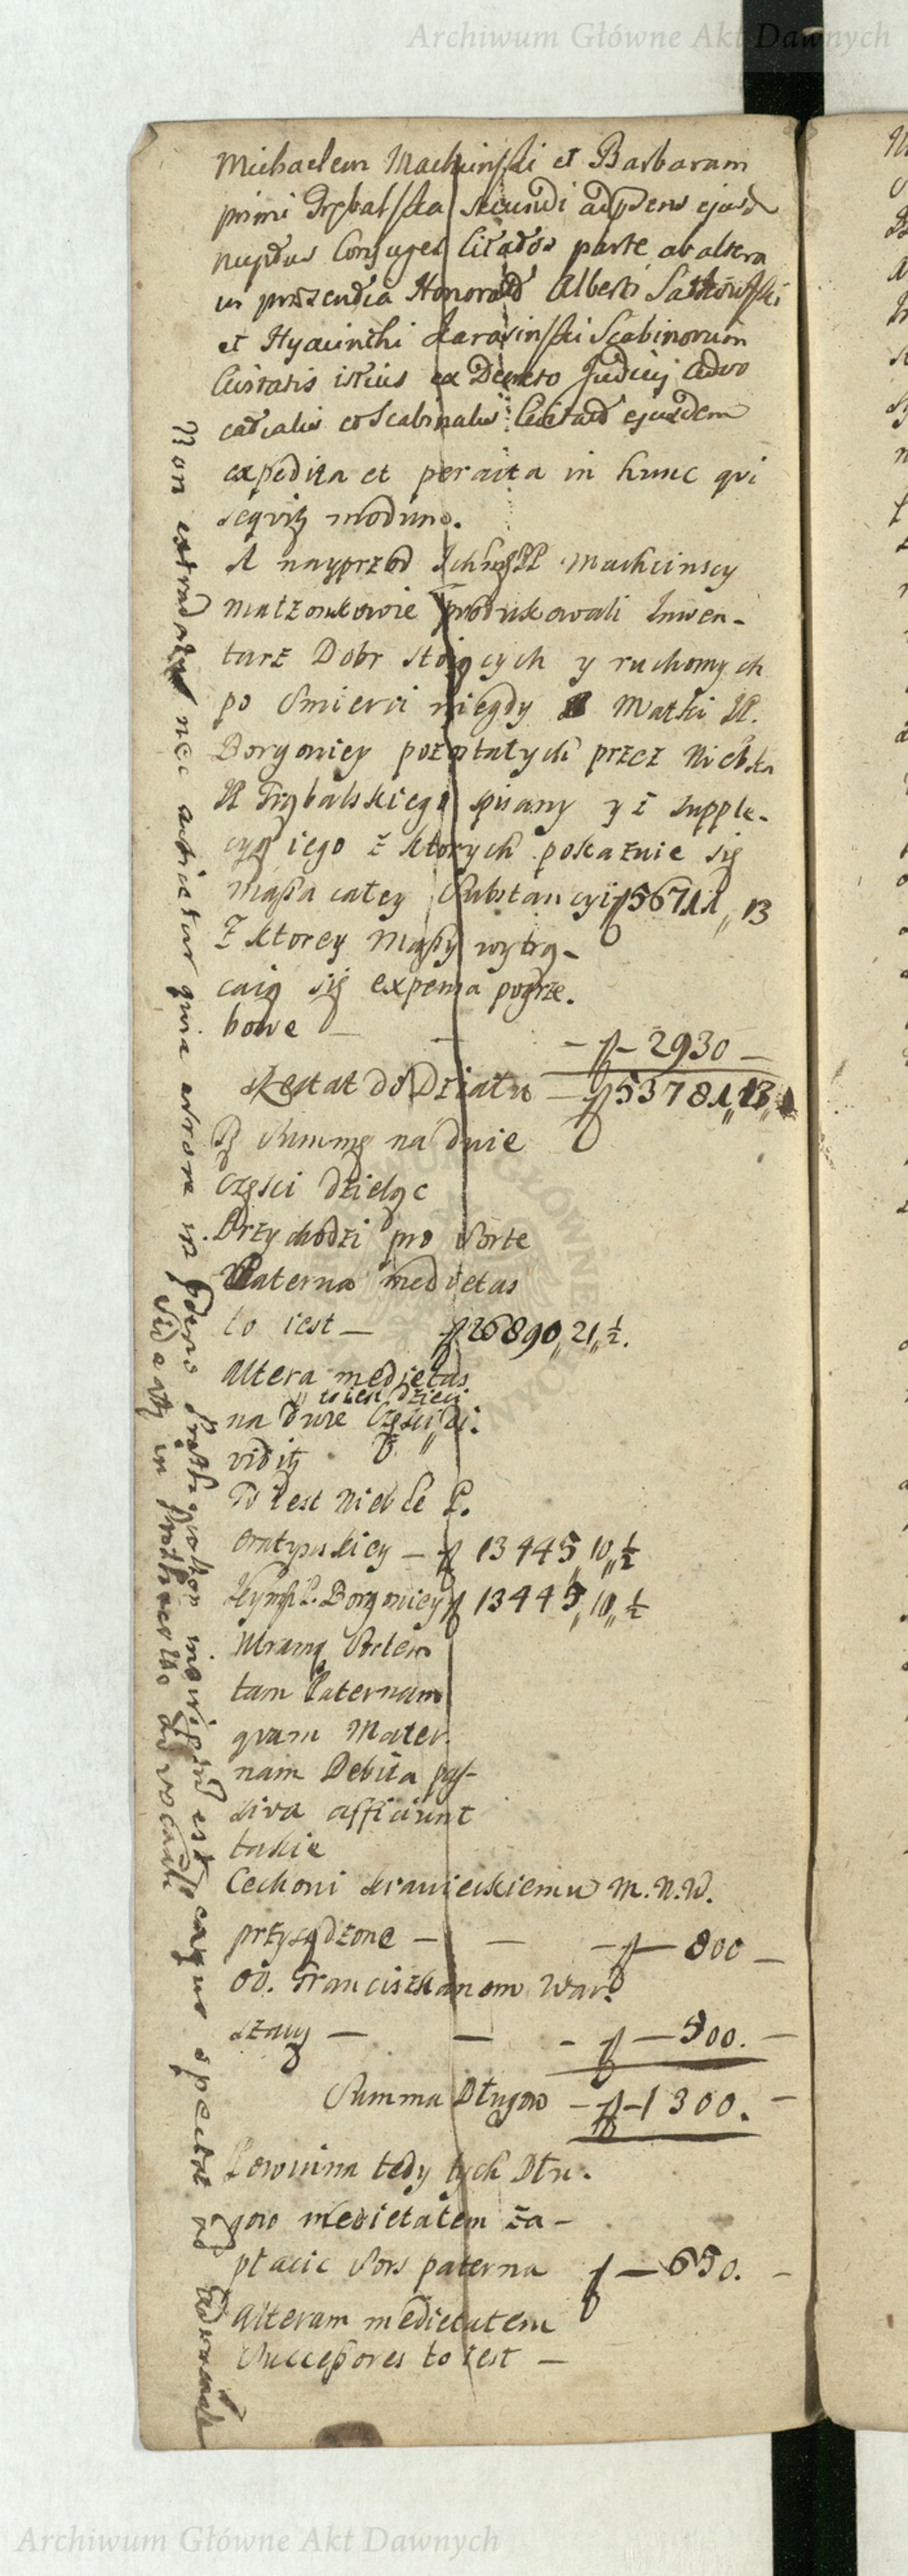 Archiwum Główne Akt Dawnych
Michaelem Machcinski et Barbaram
primi Trybalska secundi adpraesens ejusd
nuptus Conjuges Citatos parte ab altera
in praesentia Honoratd Alberti Satkowski
et Hyacinthi Karasinski Scabinorum
Civitatis istius ex Decreto Judicij Advo
catialis et Scabinalis Civitatd ejusdem
expedita et peracta in hunc qvi
seqvitz modum.
A nayprzod Machcinscy
Małzonkowie produkowali Inwen-
tarz Dobr stoiących y ruchomych
po Smierci niegdy Matki JP.
Borgoniey pozostałych przez Niebka
JP Trybalskiego spisany y z supple-
cyą iego z ktorych pokaznie się
Massa całey Substancyi f 56711 " 13
Z ktorey Massy wytrą-
caią się expensa pogrze.
bowe — — f — 2930 —
Restat do Działu — f 53781 " 13 "
Tę Summę na dwie
Części dzieląc
Przychodzi pro Sorte
Paterna medietas
to iest — f 26890 " 21 " ½.
Altera medietas
" to iest dzieci
na dwie Części " di.
viditz
To iest Nieb Ce P.
Cratynskiey — f 13445 " 10 " ½
P. Borgoniey f 13445 " 10 " ½
Utramq Sortem
tam Paternam
qvam Mater.
nam Debita pas-
siva afficiunt
takie
Cechowi Krawieckiemu M.N.W.
przysądzone — — f — 800 —
OO. Franciszkanom War
szawy — — f — 500. —
Summa Długow — f — 1300. —
Powinna tedy tych Dłu.
gow medietatem za-
płacic Sors paterna f — 650. —
Alteram medietatem
Successores to iest —
Non extradatz nec quia errore in est spectat ad
in ad
Archiwum Główne Akt Dawnych